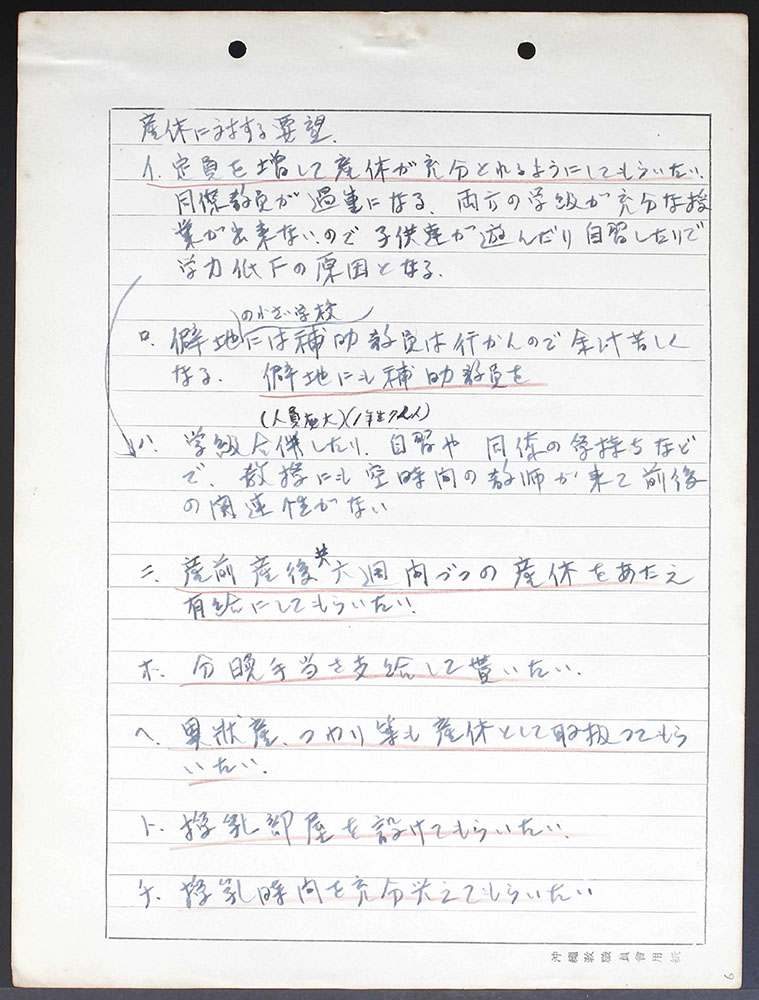 産休に対する要望.
イ. 定員を増して産休が充分とれるようにしてもらいたい.
同僚教員が過重になる. 両方の学級が充分な授
業が出来ないので子供達が遊んだり自習したりで
学力低下の原因となる.
の小さい学校
ロ. 僻地には補助教員は行かんので余計苦しく
なる. 僻地にも補助教員を
(人員 大)(1年生 人)
ハ. 学級合併したり. 自習や同僚の 持ちなど
で. 教授にも空時間の教師が来て前後
の関連性がない
ニ. 産前産後共六週間づつの産休をあたえ
有給にしてもらいたい.
ホ. 分晩手当を支給して貰いたい.
ヘ. 異状産、つわり等も産休として取扱ってもら
いたい.
ト. 授乳部屋を設けてもらいたい.
チ. 授乳時間を充分 えてもらいたい
沖繩教職員會用紙
6